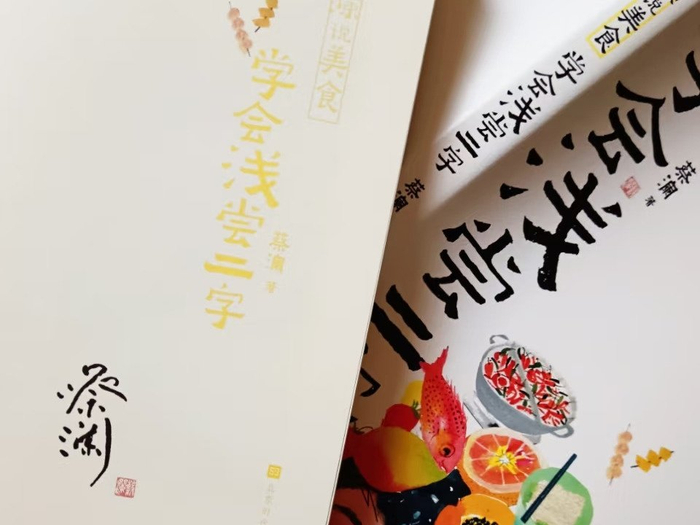 说美食
学会浅尝二字
蔡澜 著
蔡澜
说美食
学会浅尝二字
蔡澜
学会浅尝二
蔡澜 著